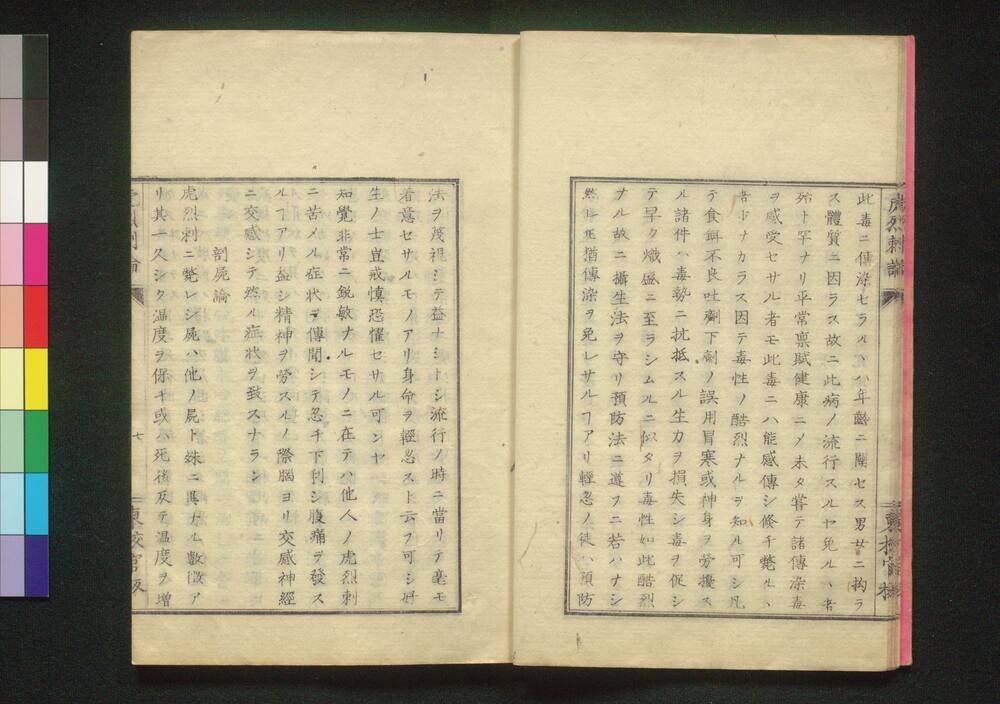 虎烈剌論
此毒ニ傳染セラルヽハ年齡ニ關セス男女ニ拘ラ
ス體質ニ因ラス故ニ此病ノ流行スルヤ免ルヽ者
殆ト罕ナリ平常禀賦健康ニメ未タ嘗テ諸傳染毒
ヲ感受セサル者モ此毒ニハ能感傳シ倏チ斃ルヽ
者少ナカラス因テ毒性ノ酷烈ナルヲ知ル可シ凡
テ食餌不良吐劑下劑ノ誤用冒寒或神身ヲ勞擾ス
ル諸件ハ毒勢ニ抗抵スル生力ヲ損失シ毒ヲ促シ
テ早ク熾盛ニ至ラシムルニ似タリ毒性如此酷烈
ナル故ニ攝生法ヲ守リ預防法ニ遵フニ若ハナシ
然レ𪜈猶傳染ヲ免レサルヿアリ輕忽ノ徒ハ預防
法ヲ蔑視シテ益ナシトシ流行ノ時ニ當リテ毫モ
着意セサルモノアリ身命ヲ輕忽スト云フ可シ好
生ノ士豈戒慎恐懼セサル可ンヤ
知覺非常ニ鋭敏ナルモノニ在テハ他人ノ虎烈剌
ニ苦メル症状ヲ傳聞シテ忽チ下利シ腹痛ヲ發ス
ルヿアリ益シ精神ヲ勞スルノ際腦ヨリ交感神經
ニ交感シテ然ル症状ヲ致スナラン
剖屍論
虎烈剌ニ斃レシ屍ハ他ノ屍ト殊ニ異ナル數徴ア
リ其一久シク温度ヲ保ヿ或ハ死後反テ温度ヲ增
七